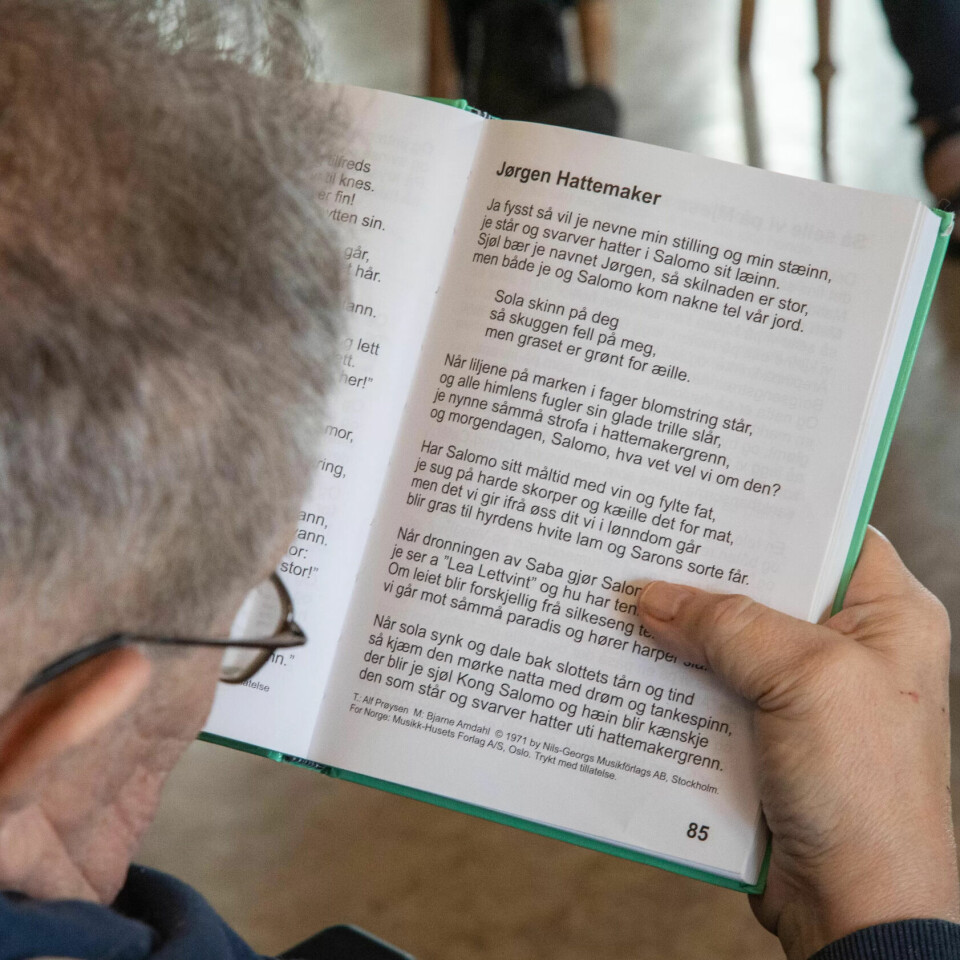 tilfreds
til knes.
er fin!
ytten sin.
går,
t hår.
ann.
g lett
tt.
her!"
mor,
ring,
ann,
vann.
or:
stor!"
nn."
latelse
Jørgen Hattemaker
Ja fysst så vil je nevne min stilling og min stæinn,
je står og svarver hatter i Salomo sit læinn.
Sjøl bær je navnet Jørgen, så skilnaden er stor,
men både je og Salomo kom nakne tel vår jord.
Sola skinn på deg
så skuggen fell på meg,
men graset er grønt for æille.
Når liljene på marken i fager blomstring står,
og alle himlens fugler sin glade trille slår,
je nynne såmmå strofa i hattemakergrenn,
og morgendagen, Salomo, hva vet vel vi om den?
Har Salomo sitt måltid med vin og fylte fat,
je sug på harde skorper og kæille det for mat,
men det vi gir ifrå øss dit vi i lønndom går
blir gras til hyrdens hvite lam og Sarons sorte får.
Når dronningen av Saba gjør Salo
je ser a "Lea Lettvint" og hu har ten
Om leiet blir forskjellig frå silkeseng te
vi går mot såmmå paradis og hører harper
Når sola synk og dale bak slottets tårn og tind
så kjæm den mørke natta med drøm og tankespinn,
der blir je sjøl Kong Salomo og hæin blir kænskje
den som står og svarver hatter uti hattemakergrenn.
T.: Alf Prøysen M: Bjarne Amdahl © 1971 by Nils-Georgs Musikförlags AB, Stockholm.
For Norge: Musikk-Husets Forlag A/S, Oslo. Trykt med tillatelse.
85